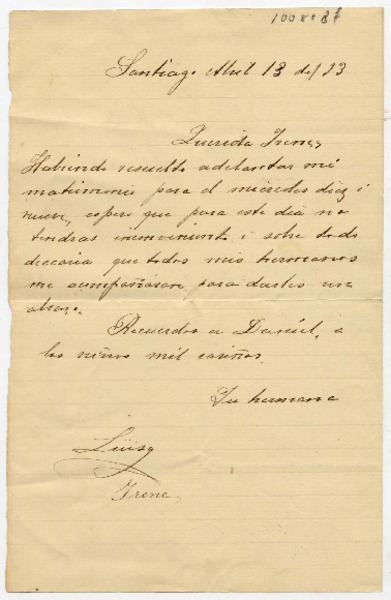 100 x 87
Santiago Abril 13 del 93
Querida Irene,
Habiendo resuelto adelantar mi
matrimonio para el miercoles diez i
nueve, espero que para este dia no
tendras inconveniente i sobre todo
desearia que todos mis hermanos
me acompañasen para darles un
abrazo.
Recuerdos a Daniel, a
los niños mil cariños.
Tu hermana
Luisa
Irene